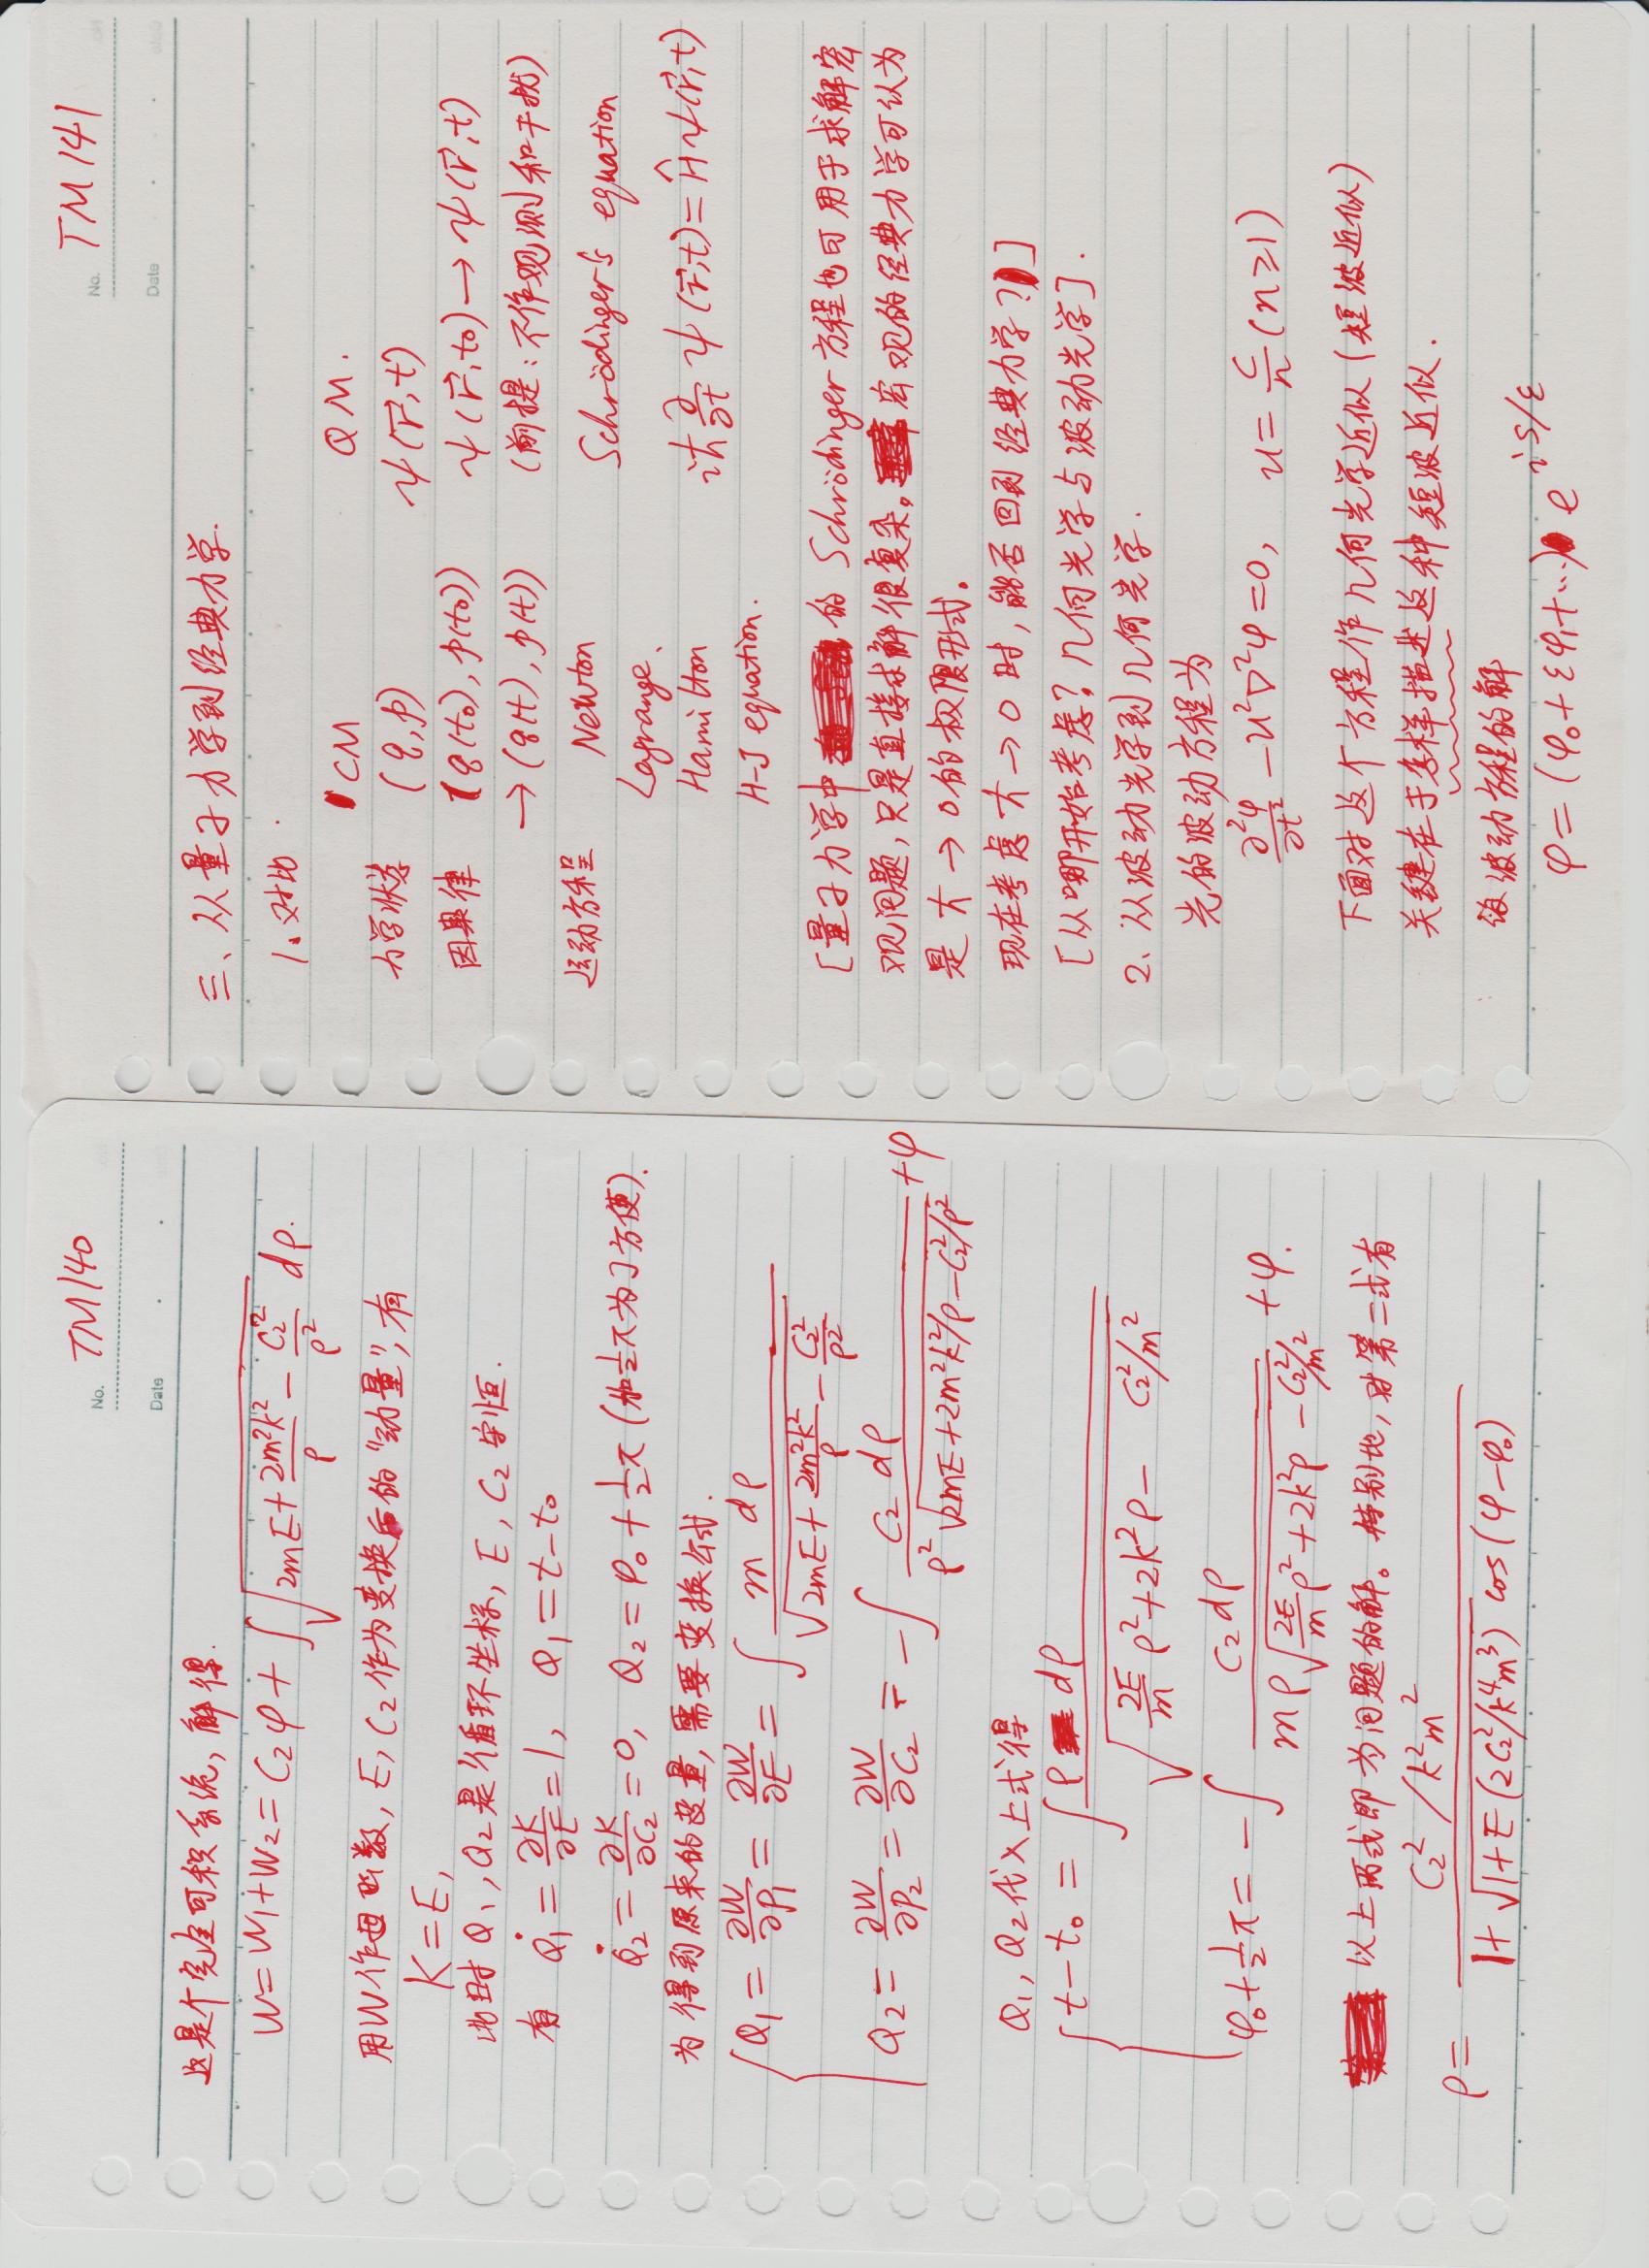 No. TM140
Date
这是个完全可积系统，解得.
W=W₁+W₂=C₂φ+∫√(2mE+2m²k²/ρ−C₂²/ρ²) dρ.
用W作母函数，E，C₂作为变换后的“动量”，有
K=E,
此时 Q₁，Q₂是循环坐标，E，C₂守恒.
有 Q̇₁=∂K/∂E=1， Q₁=t−t₀
Q̇₂=∂K/∂C₂=0， Q₂=φ₀+½π（加½π为了方便）.
为得到原来的变量，需要变换公式.
Q₁=∂W/∂P₁=∂W/∂E=∫ m dρ/√(2mE+2m²k²/ρ−C₂²/ρ²)
Q₂=∂W/∂P₂=∂W/∂C₂=−∫ C₂ dρ/(ρ²√(2mE+2m²k²/ρ−C₂²/ρ²))+φ
Q₁，Q₂代入上式得
t−t₀=∫ρ dρ/√(2E/m ρ²+2k²ρ−C₂²/m²)
φ₀+½π=−∫ C₂dρ/(mρ√(2E/m ρ²+2k²ρ−C₂²/m²))+φ.
以上两式即为问题的解。特别地，对第二式有
ρ=(C₂²/k²m²)/(1+√(1+E(2C₂²/k⁴m³)) cos(φ−φ₀))
No. TM141
Date
三、从量子力学到经典力学.
1、对比.
CM QM.
力学状态 (q,p) ψ(r⃗,t)
因果律 (q(t₀),p(t₀)) ψ(r⃗,t₀)→ψ(r⃗,t)
→(q(t),p(t)) （前提：不作观测和干扰）
运动方程 Newton Schrödinger's equation
Lagrange、
Hamilton iħ ∂/∂t ψ(r⃗,t)=Ĥψ(r⃗,t)
H-J equation.
[量子力学中的 Schrödinger 方程也可用于求解宏
观问题，只是直接求解很复杂。宏观的经典力学可认为
是 ħ→0的极限形式。
现在考虑 ħ→0 时，能否回到经典力学？]
[从哪开始考虑？几何光学与波动光学].
2、从波动光学到几何光学.
光的波动方程为
∂²φ/∂t²−u²∇²φ=0， u=c/n (n≥1)
下面对这个方程作几何光学近似（短波近似）
关键在于怎样描述这种短波近似.
设波动方程的解
φ=(φ₀+εφ₁+⋯)e^{iS/ε}